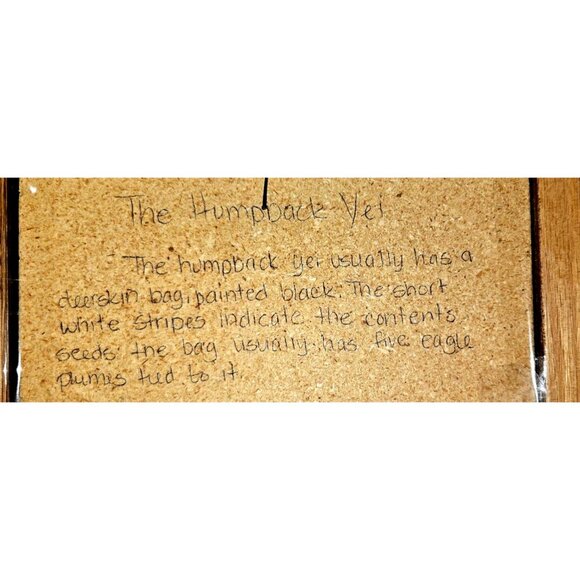 The Humpback Yei
The humpback yei usually has a
deerskin bag, painted black. The short
white stripes indicate the contents
seeds the bag usually has five eagle
plumes tied to it.